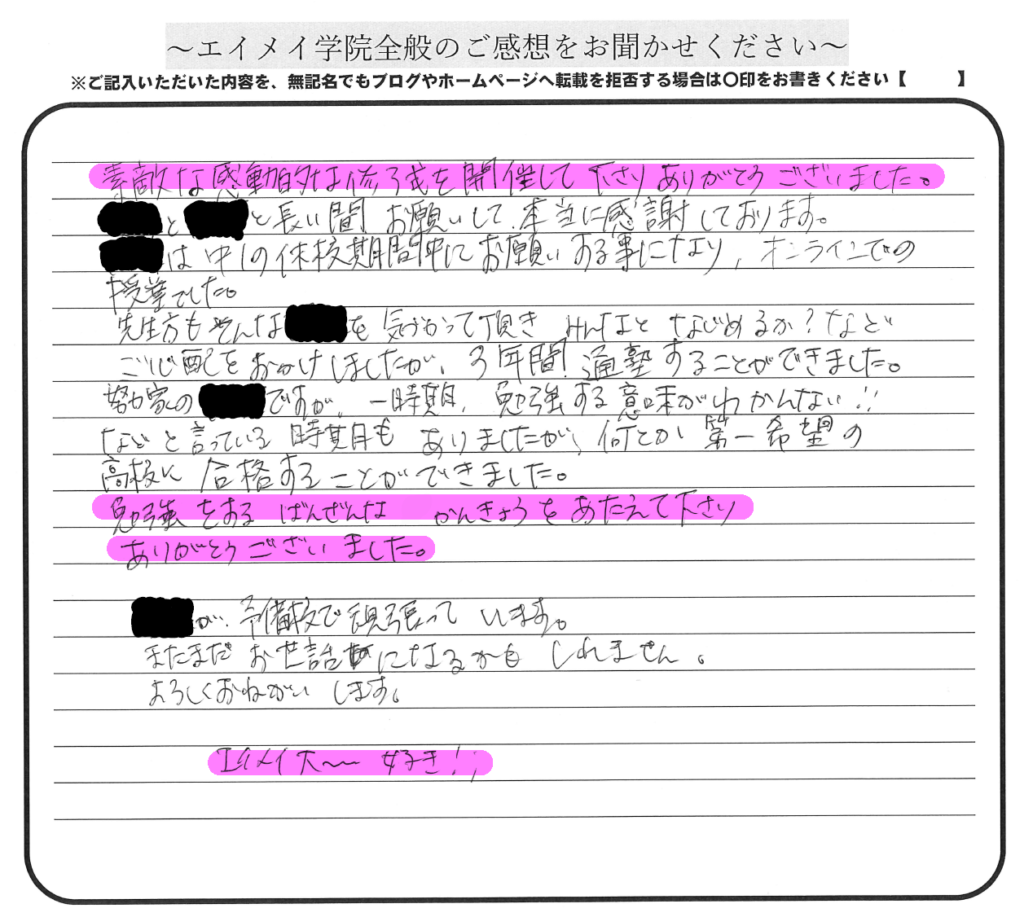 ～エイメイ学院全般のご感想をお聞かせください～
※ご記入いただいた内容を、無記名でもブログやホームページへ転載を拒否する場合は〇印をお書きください【　　　】
素敵な感動的な修了式を開催して下さりありがとうございました。
と と長い間 お願いして、本当に感謝しております。
は中1の休校期間中にお願いする事になり、オンラインでの
授業でした。
先生方もそんな を気づかって頂き みんなとなじめるか？など
ご心配をおかけしましたが、3年間通塾することができました。
努力家の ですが、一時期、勉強する意味がわかんない!!
などと言っている時期もありましたが、何とか第一希望の
高校に合格することができました。
勉強をする ばんぜんな かんきょうをあたえて下さり
ありがとうございました。
が、予備校で頑張っています。
まだまだ お世話になるかもしれません。
よろしくおねがいします。
エイメイ大〜好き!!